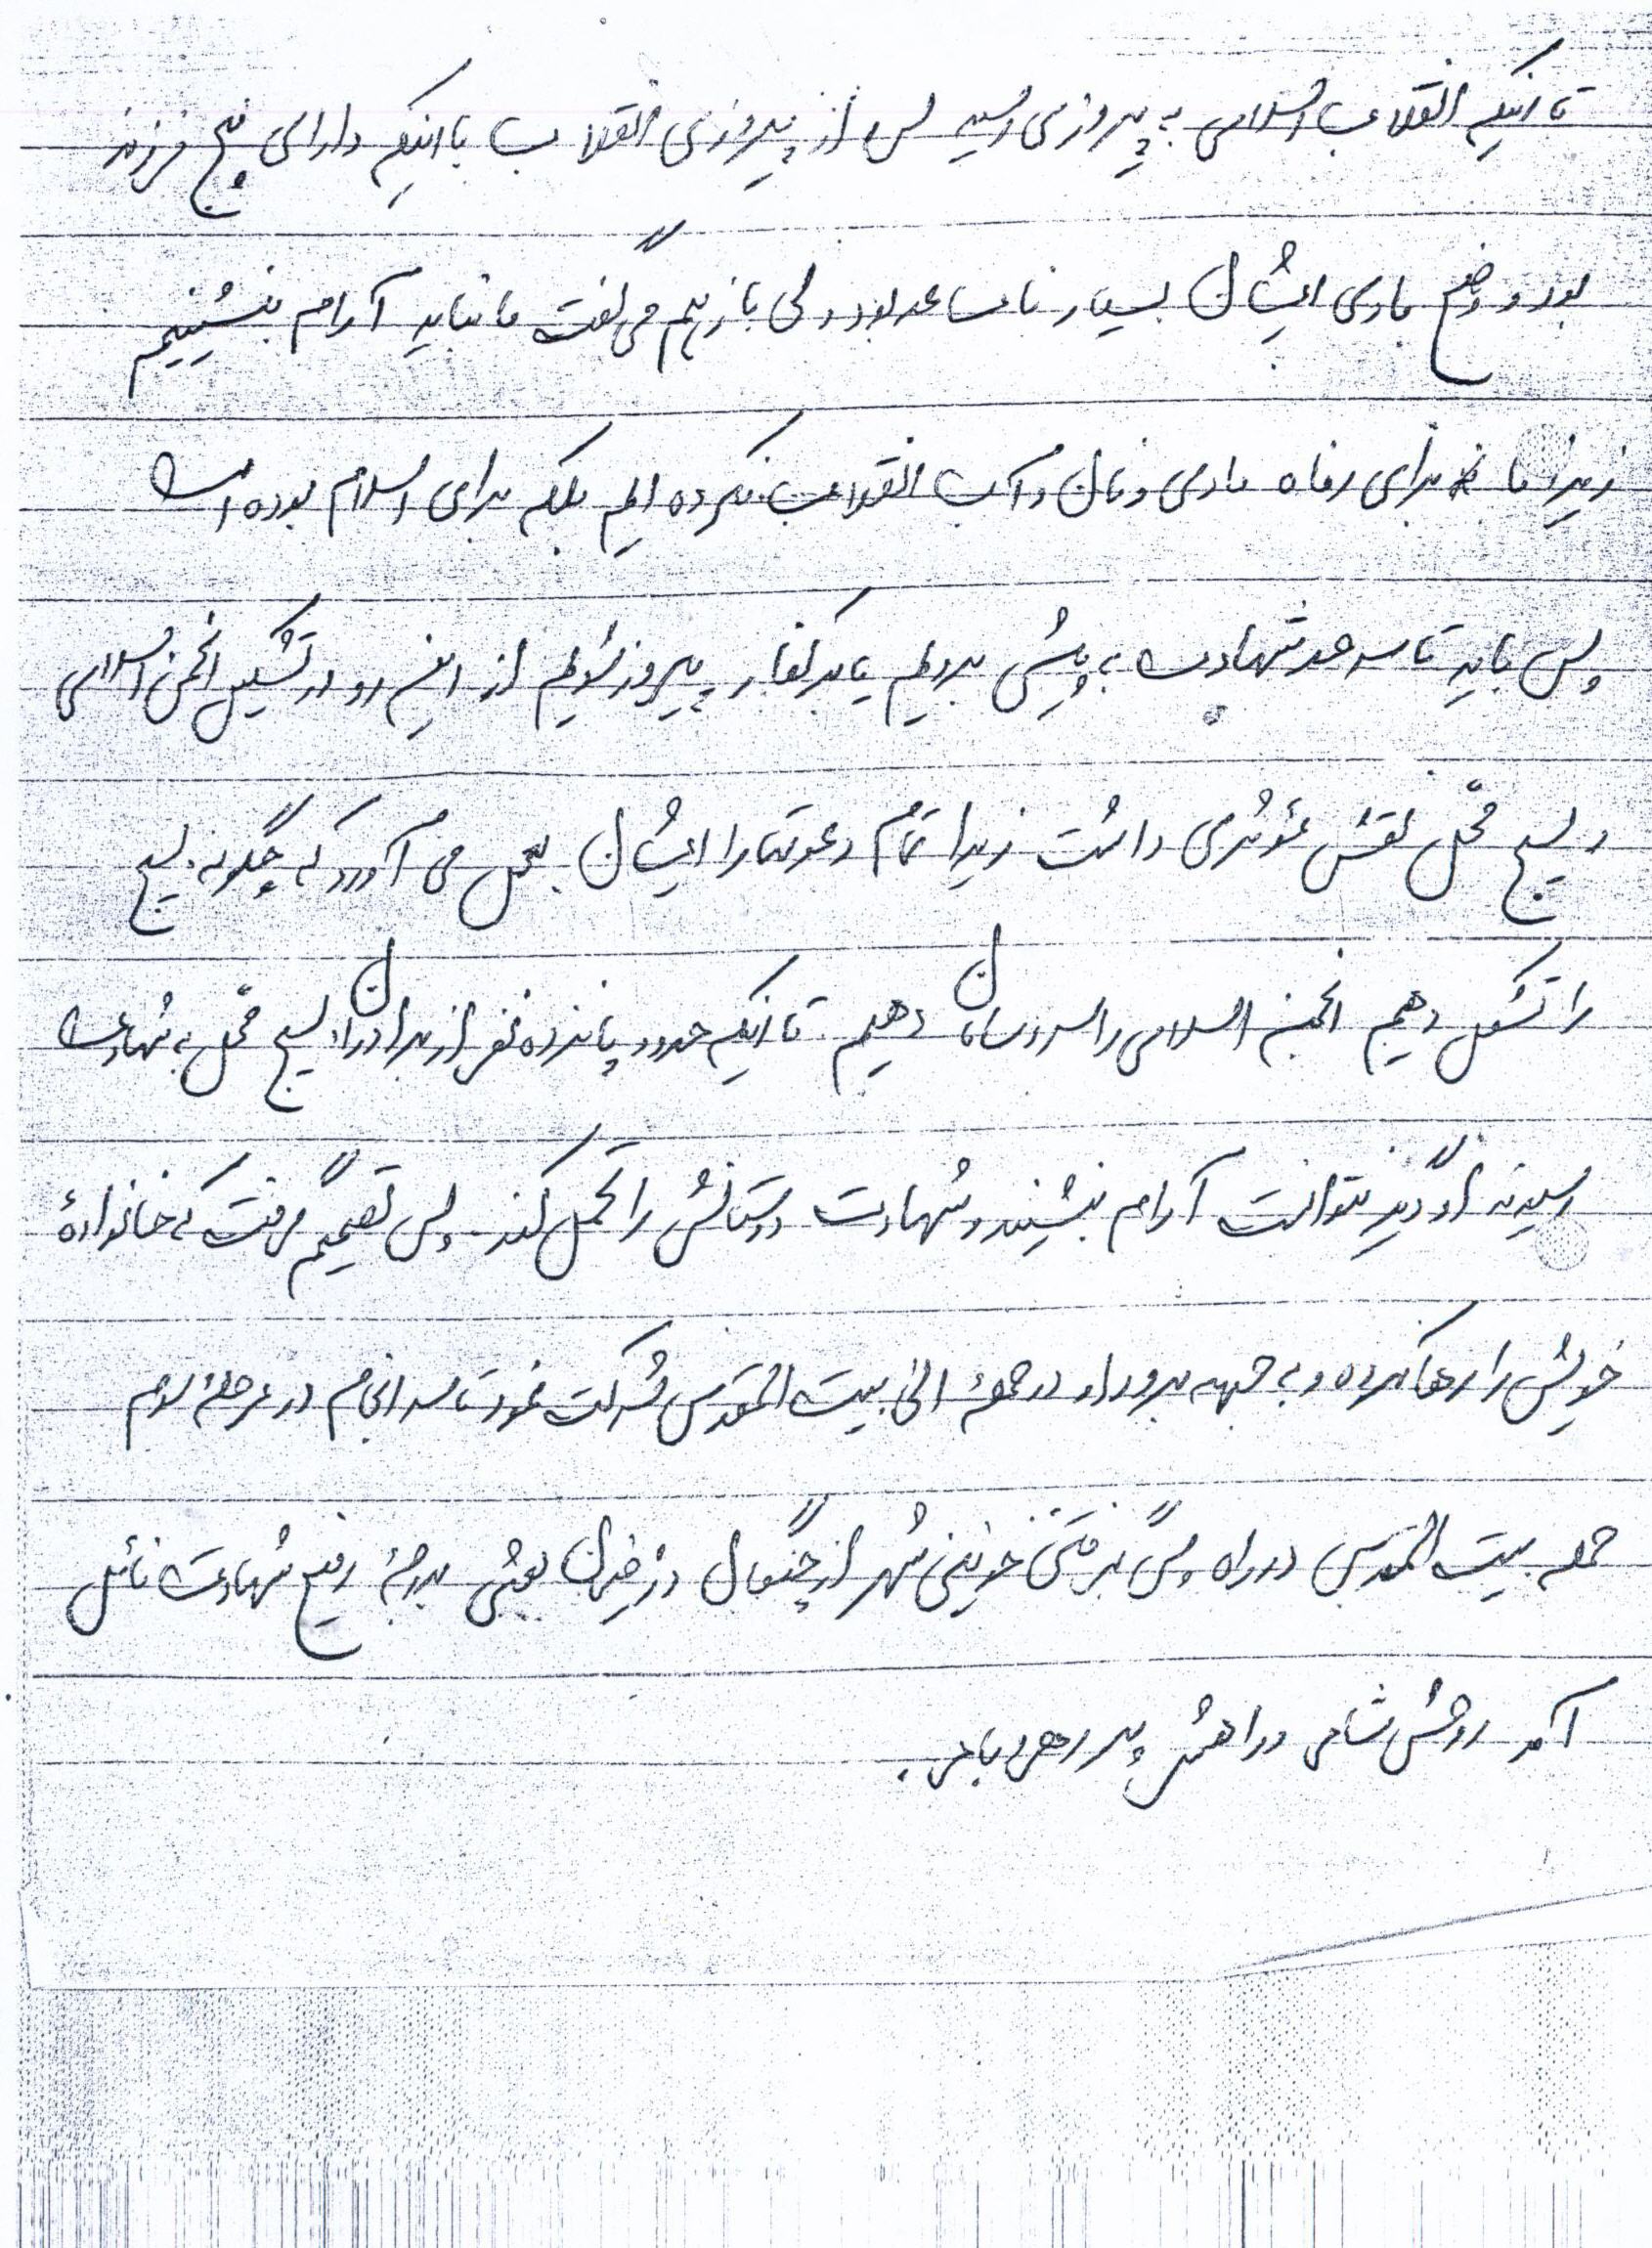 تا اینکه انقلاب اسلامی به پیروزی رسید پس از پیروزی انقلاب با اینکه دارای پنج فرزند
بود و وضع مادی ایشان بسیار نامساعد بود ولی باز هم می گفت ما نباید آرام بنشینیم
زیرا ما برای رفاه مادی و نان و آب انقلاب نکرده ایم بلکه برای اسلام بوده است
پس باید تا سرحد شهادت به پیش برویم یا بر کفار پیروز شویم از این رو در تشکیل انجمن اسلامی
و بسیج محل نقش مؤثری داشت زیرا تمام دعوتها را ایشان بعمل می آورد که چگونه بسیج
را تشکل دهیم انجمن اسلامی را سر و سامان دهیم. تا اینکه حدود پانزده نفر از برادران بسیج محل به شهادت
رسیدند او دیگر نتوانست آرام بنشیند و شهادت دوستانش را تحمل کند. پس تصمیم گرفت که خانوادهٔ
خویش را رها کرده و به جبهه برود او در حملهٔ الی بیت المقدس شرکت نمود تا سرانجام در مرحلهٔ سوم
حمله بیت المقدس در راه پس گرفتن خونین شهر از چنگال دژخیمان بعثی بدرجهٔ رفیع شهادت نائل
آمد روحش شاد و راهش پر رهرو باد.